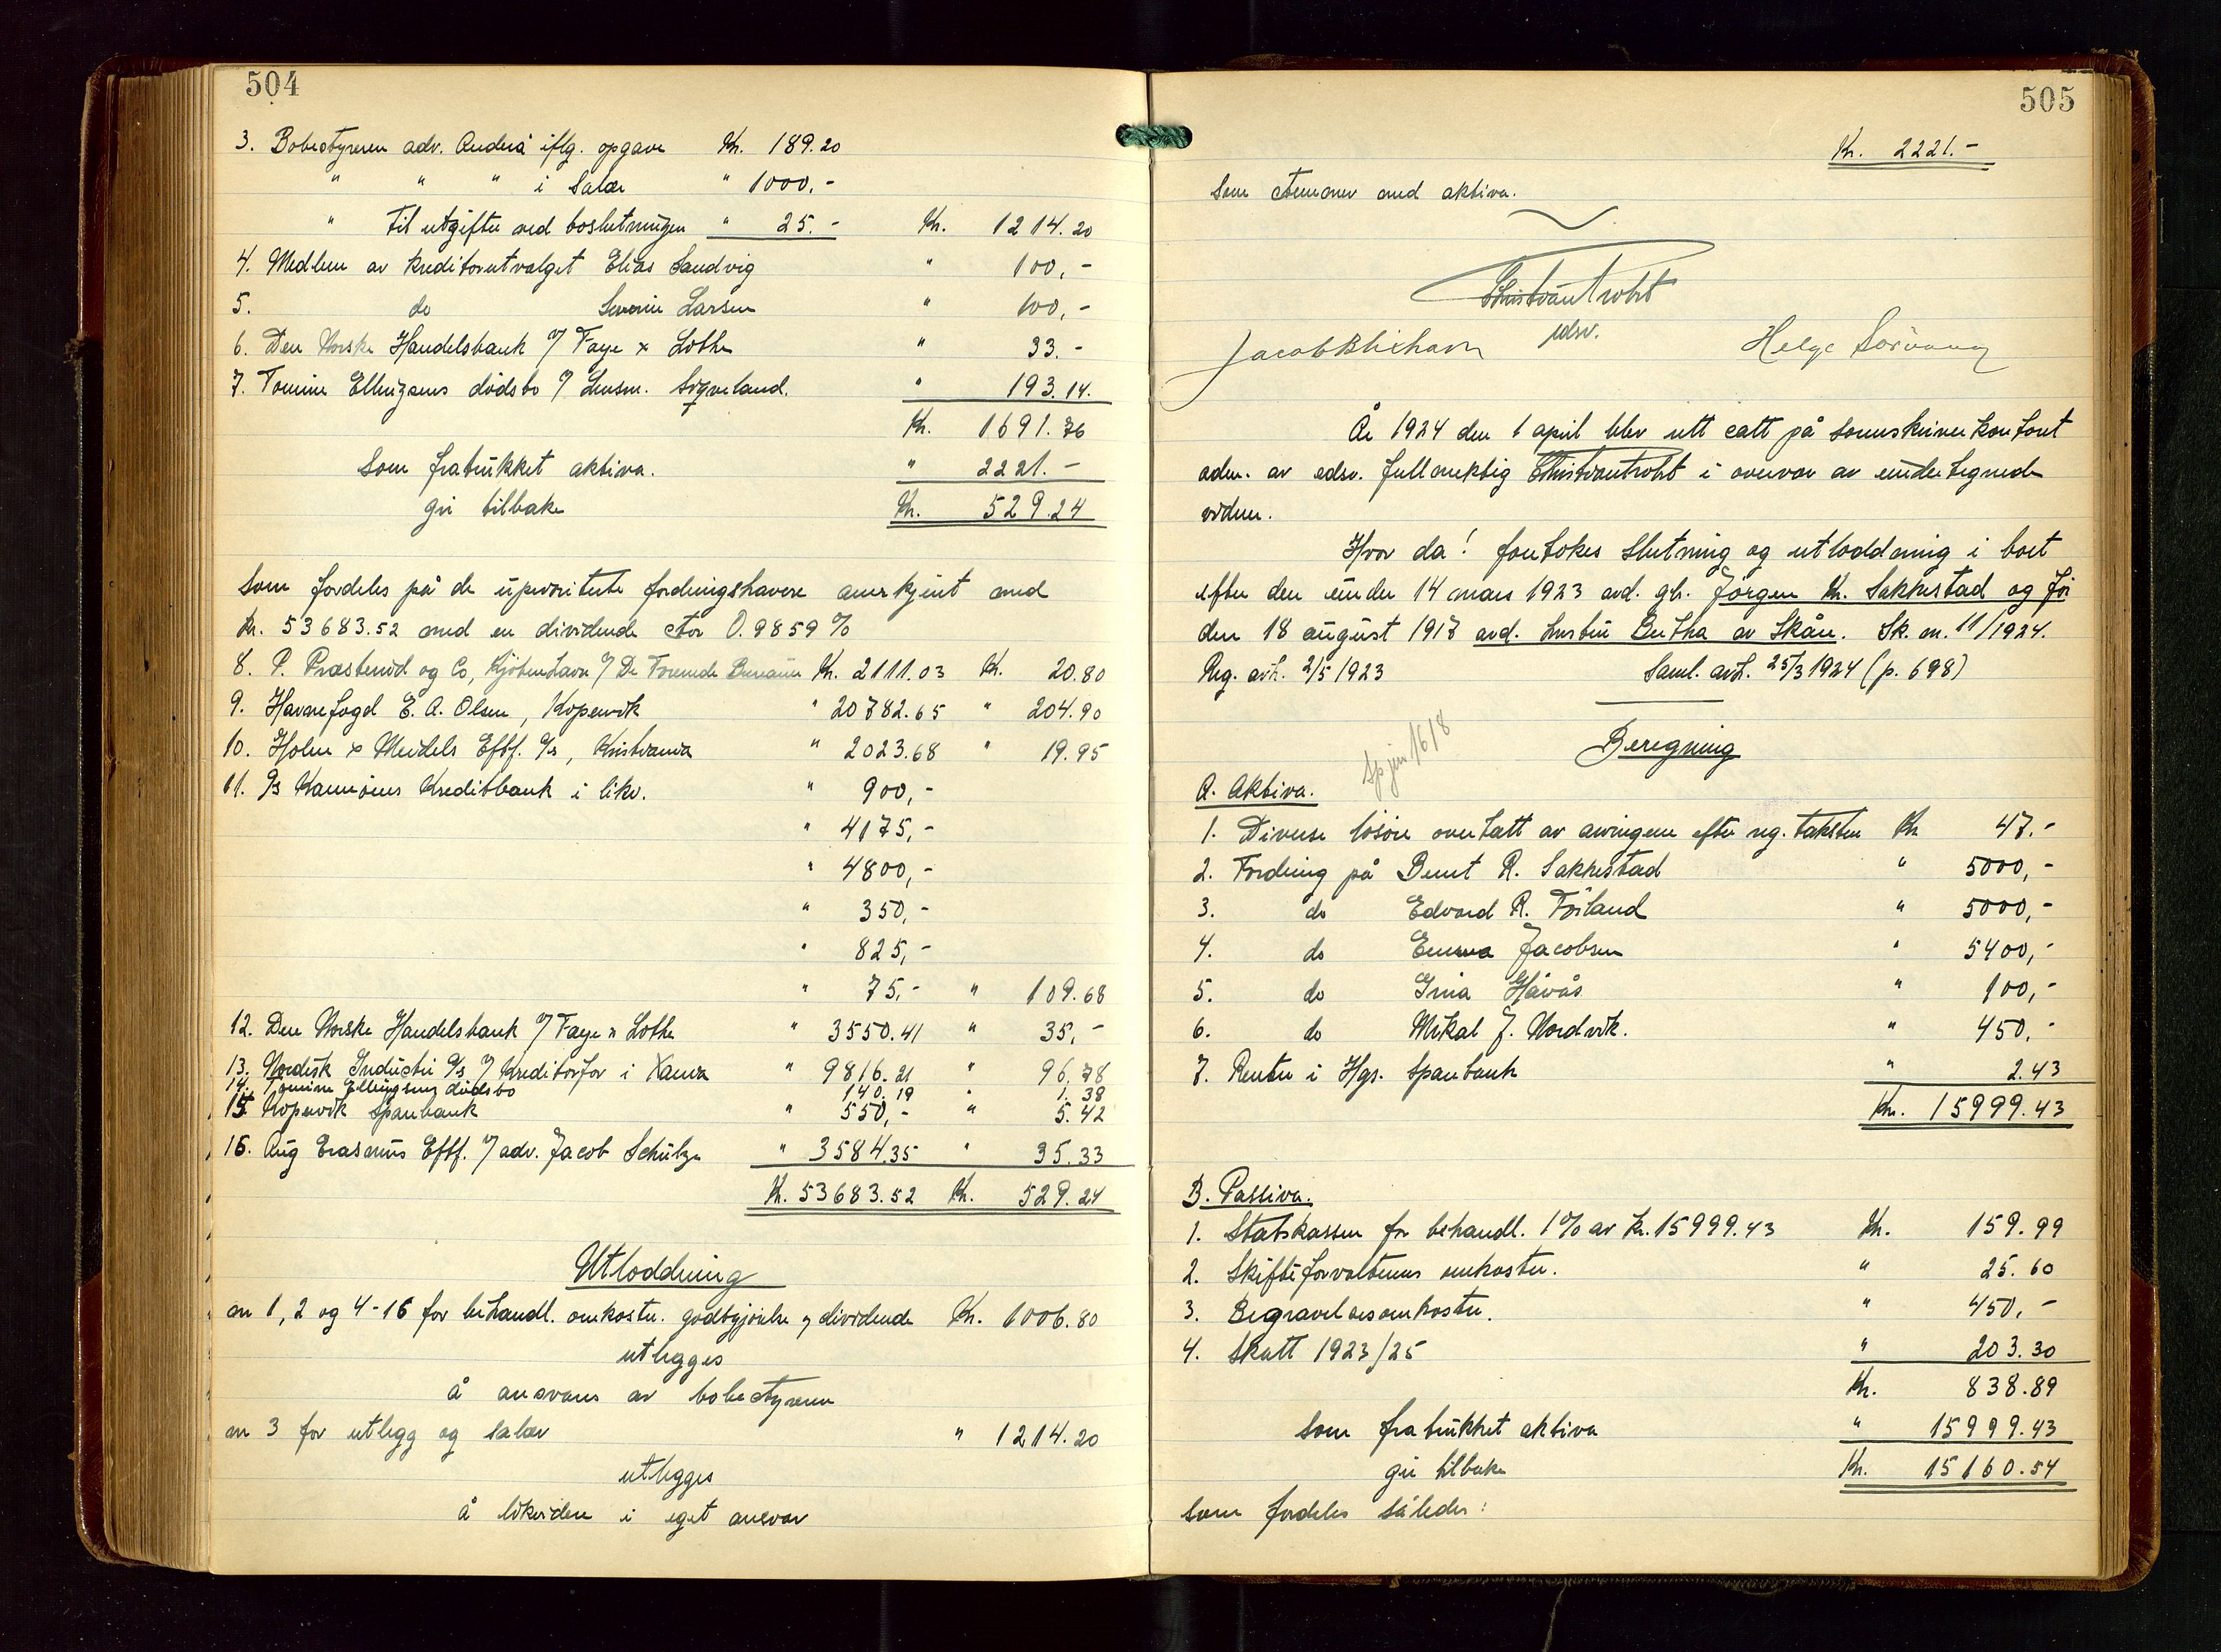 504
3. Bobestyreren adv. Andeså iflg. opgave Kr. 189.20
" " " i Salær " 1000,-
" til utgifter ved boslutningen " 25.- Kr. 1214.20
4. Medlem av kreditorutvalget Elias Sandvig " 100,-
5. do Severin Larsen " 100,-
6. Den Norske Handelsbank v/ Faye & Lothe " 33.-
7. Tomine Ellingsens dødsbo v/ Lensm. Sigveland. " 193.14.
Kr. 1691.76
Som fratrukket aktiva. " 2221.-
gir tilbake Kr. 529.24
Som fordeles på de upriviterte fordringshavere anerkjent med
Kr. 53683.52 med en dividende stor 0.9859 %
8. P. Præsterud og Co, Kjøbenhavn v/ De Forenede Bureauer Kr. 2111.03 Kr. 20.80
9. Havnefogd E. A. Olsen, Kopervik " 20782.65 " 204.90
10. Holm & Meidels Eftf. A/s, Kristiania " 2023.68 " 19.95
11. A/s Karmöens Kreditbank i likv. " 900,-
" 4175,-
" 4800,-
" 350,-
" 825,-
" 75,- " 109.68
12. Den Norske Handelsbank v/ Faye & Lothe " 3550.41 " 35,-
13. Nordisk Industri A/s v/ Kreditorfor i Xania " 9816.21 " 96.78
14. Tomine Ellingsens dødsbo 140.19 " 1.38
15. Kopervik Sparebank " 550,- " 5.42
16. Aug Erasmus Eftf. v/ adv. Jacob Schulze " 3584.35 " 35.33
Kr. 53683.52 Kr. 529.24
Utloddning
an 1, 2 og 4-16 for behandl. omkostn. godtgjørelse og dividende Kr. 1006.80
utlegges
å ansvars av bobestyreren
an 3 for utlegg og salær " 1214.20
utlegges
å likviden i eget ansvar
505
Kr. 2221.-
Som stemmer med aktiva.
edsv.
Jacob Blixhavn Helge Sörvaag
År 1924 den 1 april blev rett satt på sorenskriverkontoret
adm. av edsv. fullmektig i overvær av undertegnede
vidner.
Hvor da! foretokes slutning og utloddning i boet
efter den under 14 mars 1923 avd. gb. Jörgen Kr. Sakkestad og for
den 18 august 1917 avd. hustru Bertha av Skåre. Sk. m. 11/1924.
Reg. avh. 2/5 1923 Saml. avh. 25/3 1924 (p. 698)
Beregning
A. Aktiva.
1. Diverse lösöre overtatt av arvingene efter reg. taksten Kr 47.-
2. Fordring på Bernt R. Sakkestad " 5000,-
3. do Edvard R. Föiland " 5000,-
4. do Emma Jacobsen " 5400,-
5. do Gina Håvås " 100,-
6. do Mikal J. Nordvik. " 450.-
7. Renter i Hgs. Sparebank " 2.43
Kr. 15999.43
B. Passiva.
1. Statskassen for behandl. 1% av kr. 15999.43 Kr. 159.99
2. Skifteforvalterens omkostn. " 25.60
3. Begravelsesomkostn. " 450.-
4. Skatt 1923/25 " 203.30
Kr. 838.89
Som fratrukket aktiva " 15999.43
gir tilbake Kr. 15160.54
som fordeles således: